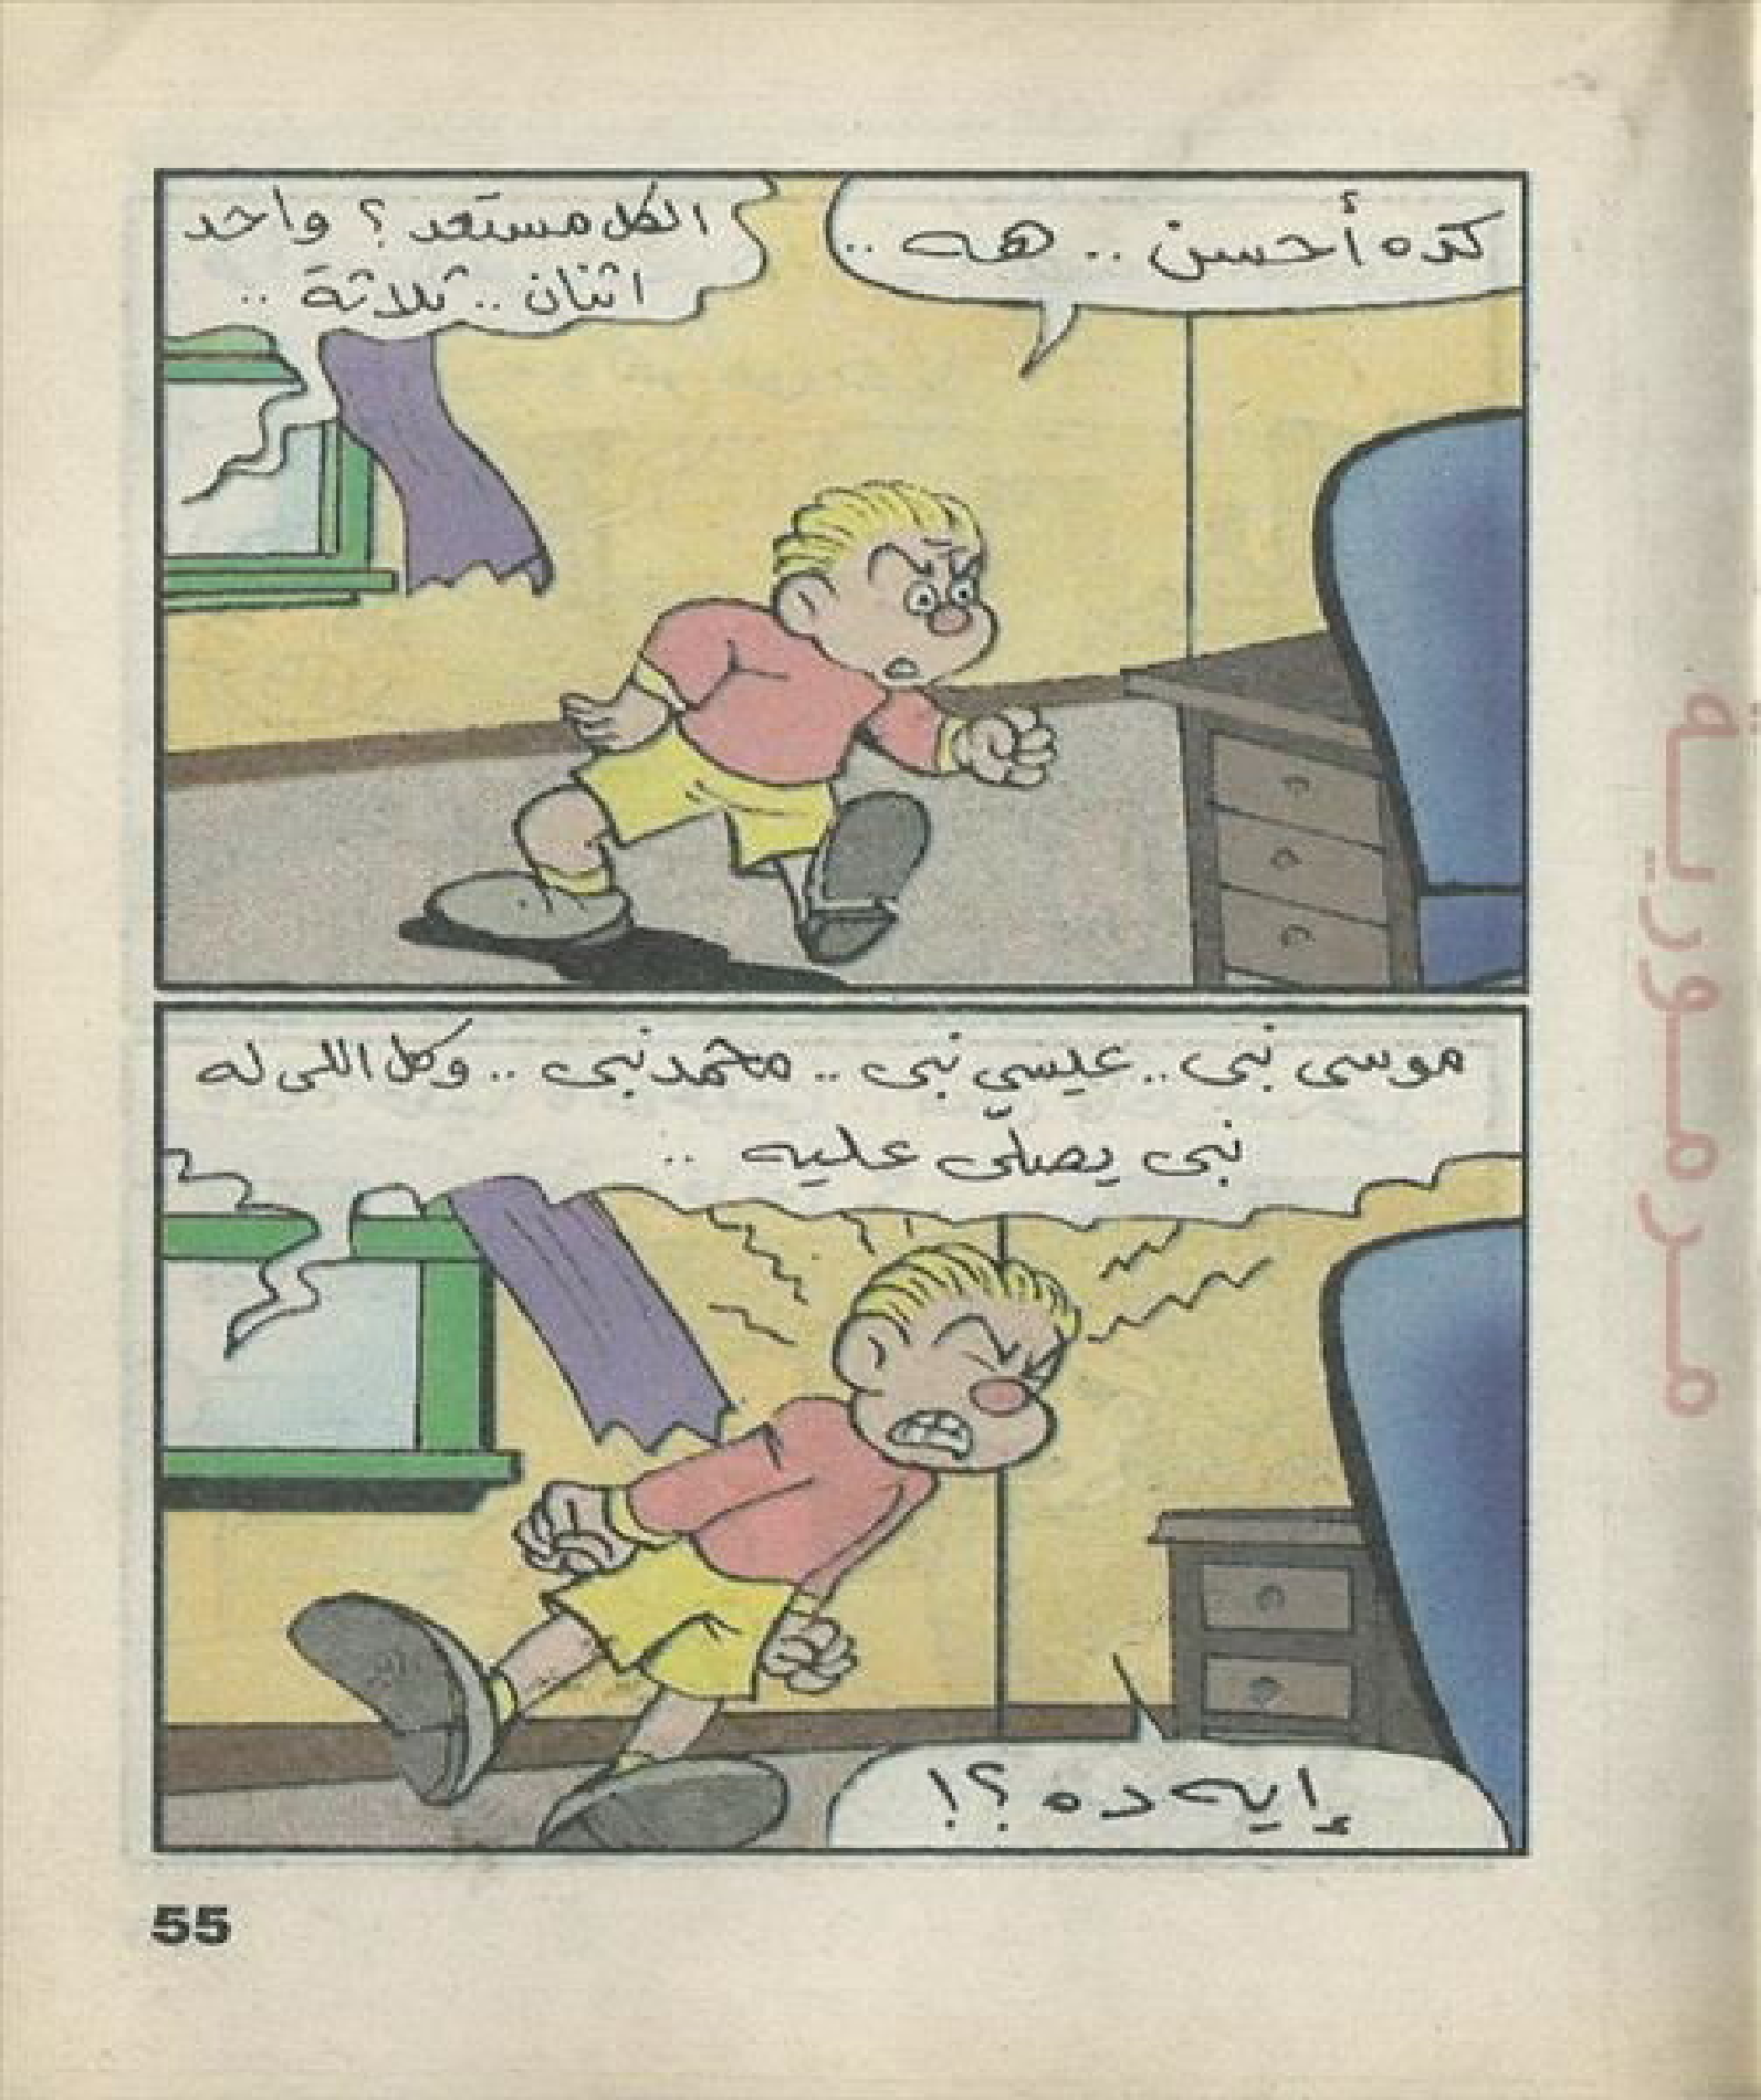 كده أحسن .. هه ..
الكل مستعد ؟ واحد
اتنان .. ثلاثة ..
موسى نبى .. عيسي نبى .. محمد نبى .. وكل اللى له
نبى يصلّى عليه ..
إيه ده ؟!
55
مرمورية